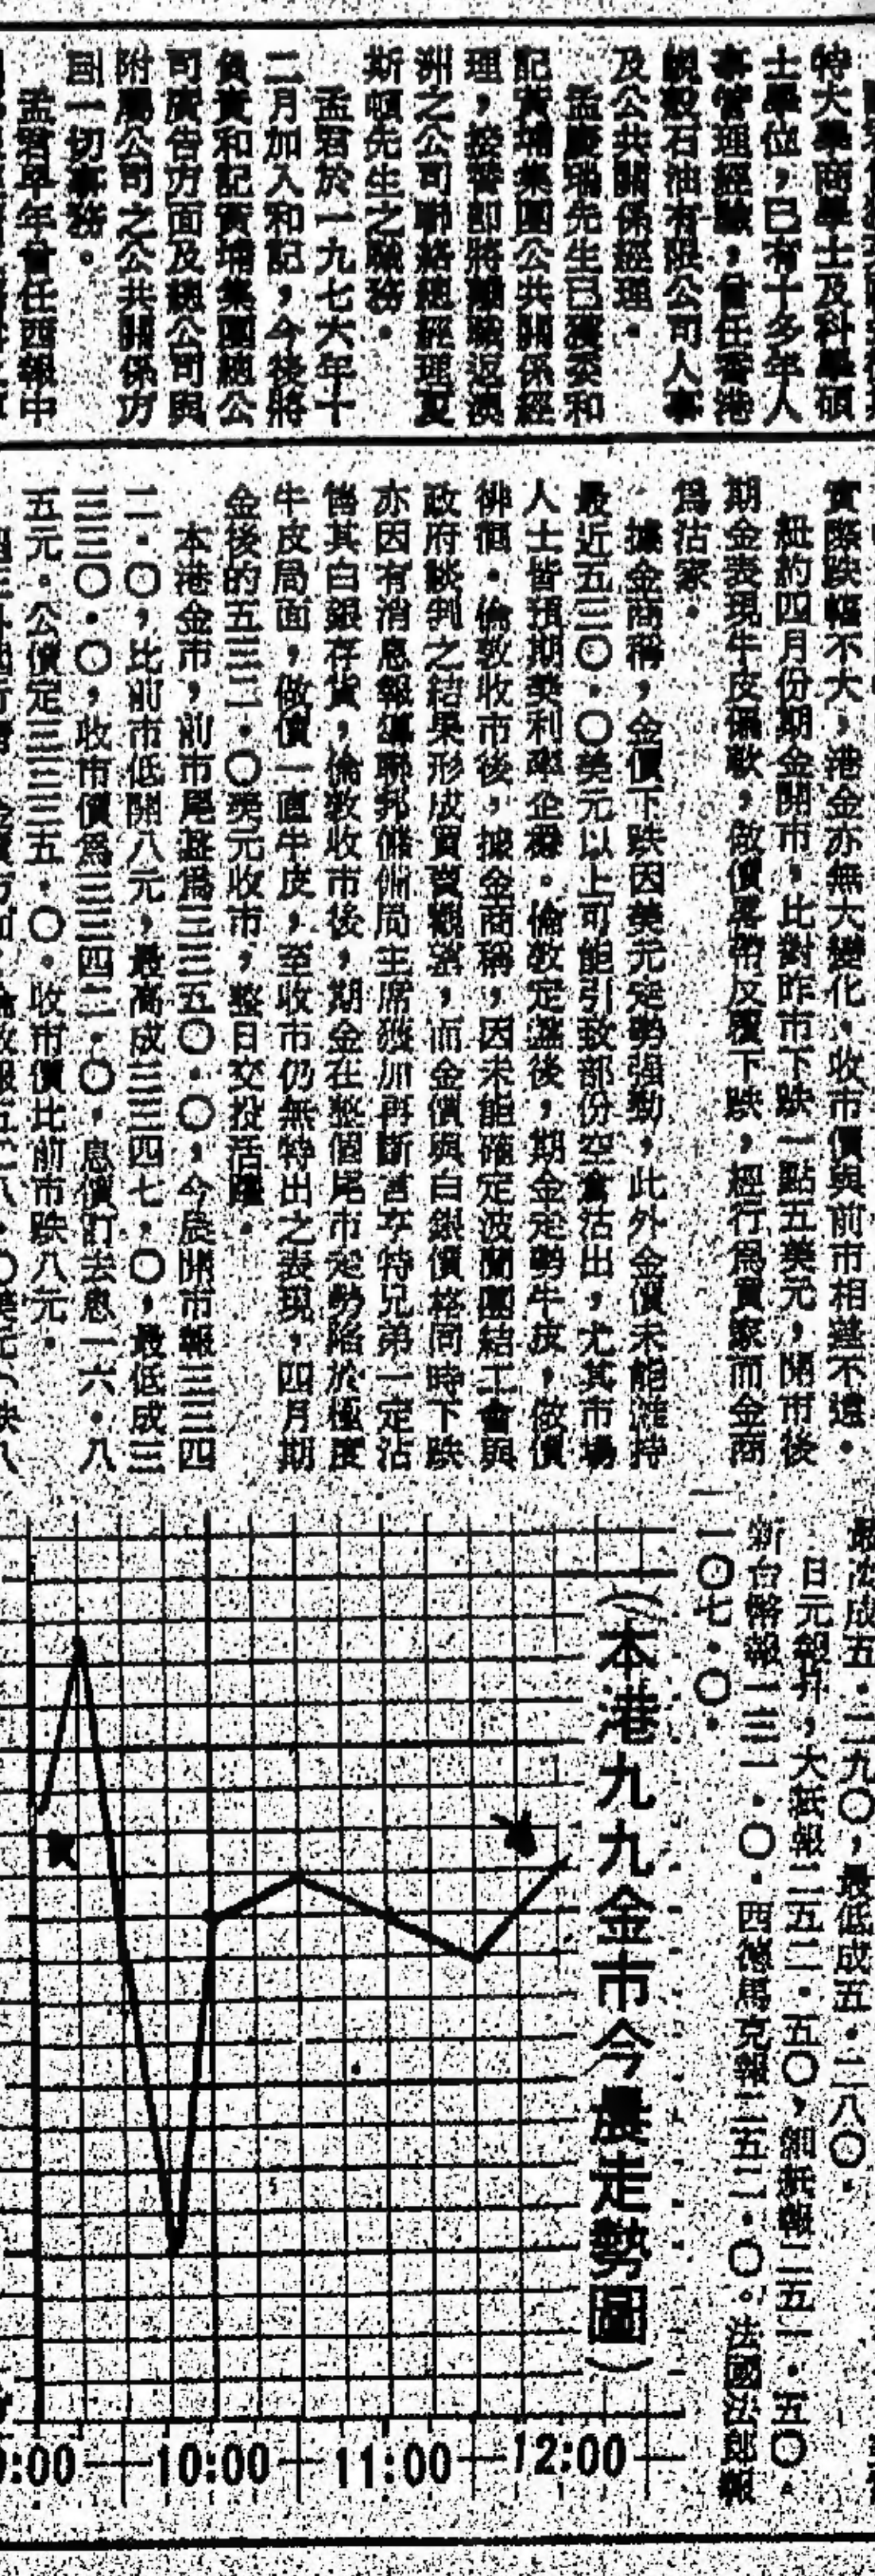 特大學商學士及科學碩
士學位，已有十多年人
事管理經驗，曾任香港
蜆殼石油有限公司人事
及公共關係經理。
孟慶瑞先生已獲委和
記黃埔集團公共關係經
理，接替即將離職返澳
洲之公司聯絡總經理夏
斯頓先生之職務。
孟君於一九七六年十
二月加入和記，今後將
負責和記黃埔集團總公
司廣告方面及總公司與
附屬公司之公共關係方
面一切事務。
孟君早年曾任西報中
實際跌幅不大，港金亦無大變化，收市價與前市相差不遠。
紐約四月份期金開市，比對昨市下跌一點五美元，開市後
期金表現牛皮偏軟，做價畧帶反覆下跌，經行爲買家而金商
爲沽家。
據金商稱，金價下跌因美元走勢强勁，此外金價未能維持
最近五三〇·〇美元以上可能引致部份空倉沽出，尤其市場
人士皆預期美利率企穩。倫敦定盤後，期金走勢牛皮，做價
徘徊。倫敦收市後，據金商稱，因未能確定波蘭團結工會與
政府談判之結果形成買賣觀望，而金價與白銀價格同時下跌
亦因有消息報導聯邦儲備局主席獲加再斷言亨特兄弟一定沽
售其白銀存貨，倫敦收市後，期金在整個尾市走勢陷於極度
牛皮局面，做價一直牛皮，至收市仍無特出之表現，四月期
金後的五三二·〇美元收市，整日交投活躍。
本港金市，前市尾盤爲三三五〇·〇，今晨開市報三三四
二·〇，比前市低開八元，最高成三三四七·〇，最低成三
三三〇·〇，收市價爲三三四二·〇，息價訂去息一六·八
五元。公價定三三三五·〇。收市價比前市跌八元。
最高成五·二九〇，最低成五·二八〇。
日元報升，大紙報二五二·五〇，細紙報二五一·五〇。
新台幣報一三一·〇。西德馬克報二五二·〇。法國法郎報
一〇七·〇。
（本港九九金市今晨走勢圖）
9:00
10:00
11:00
12:00